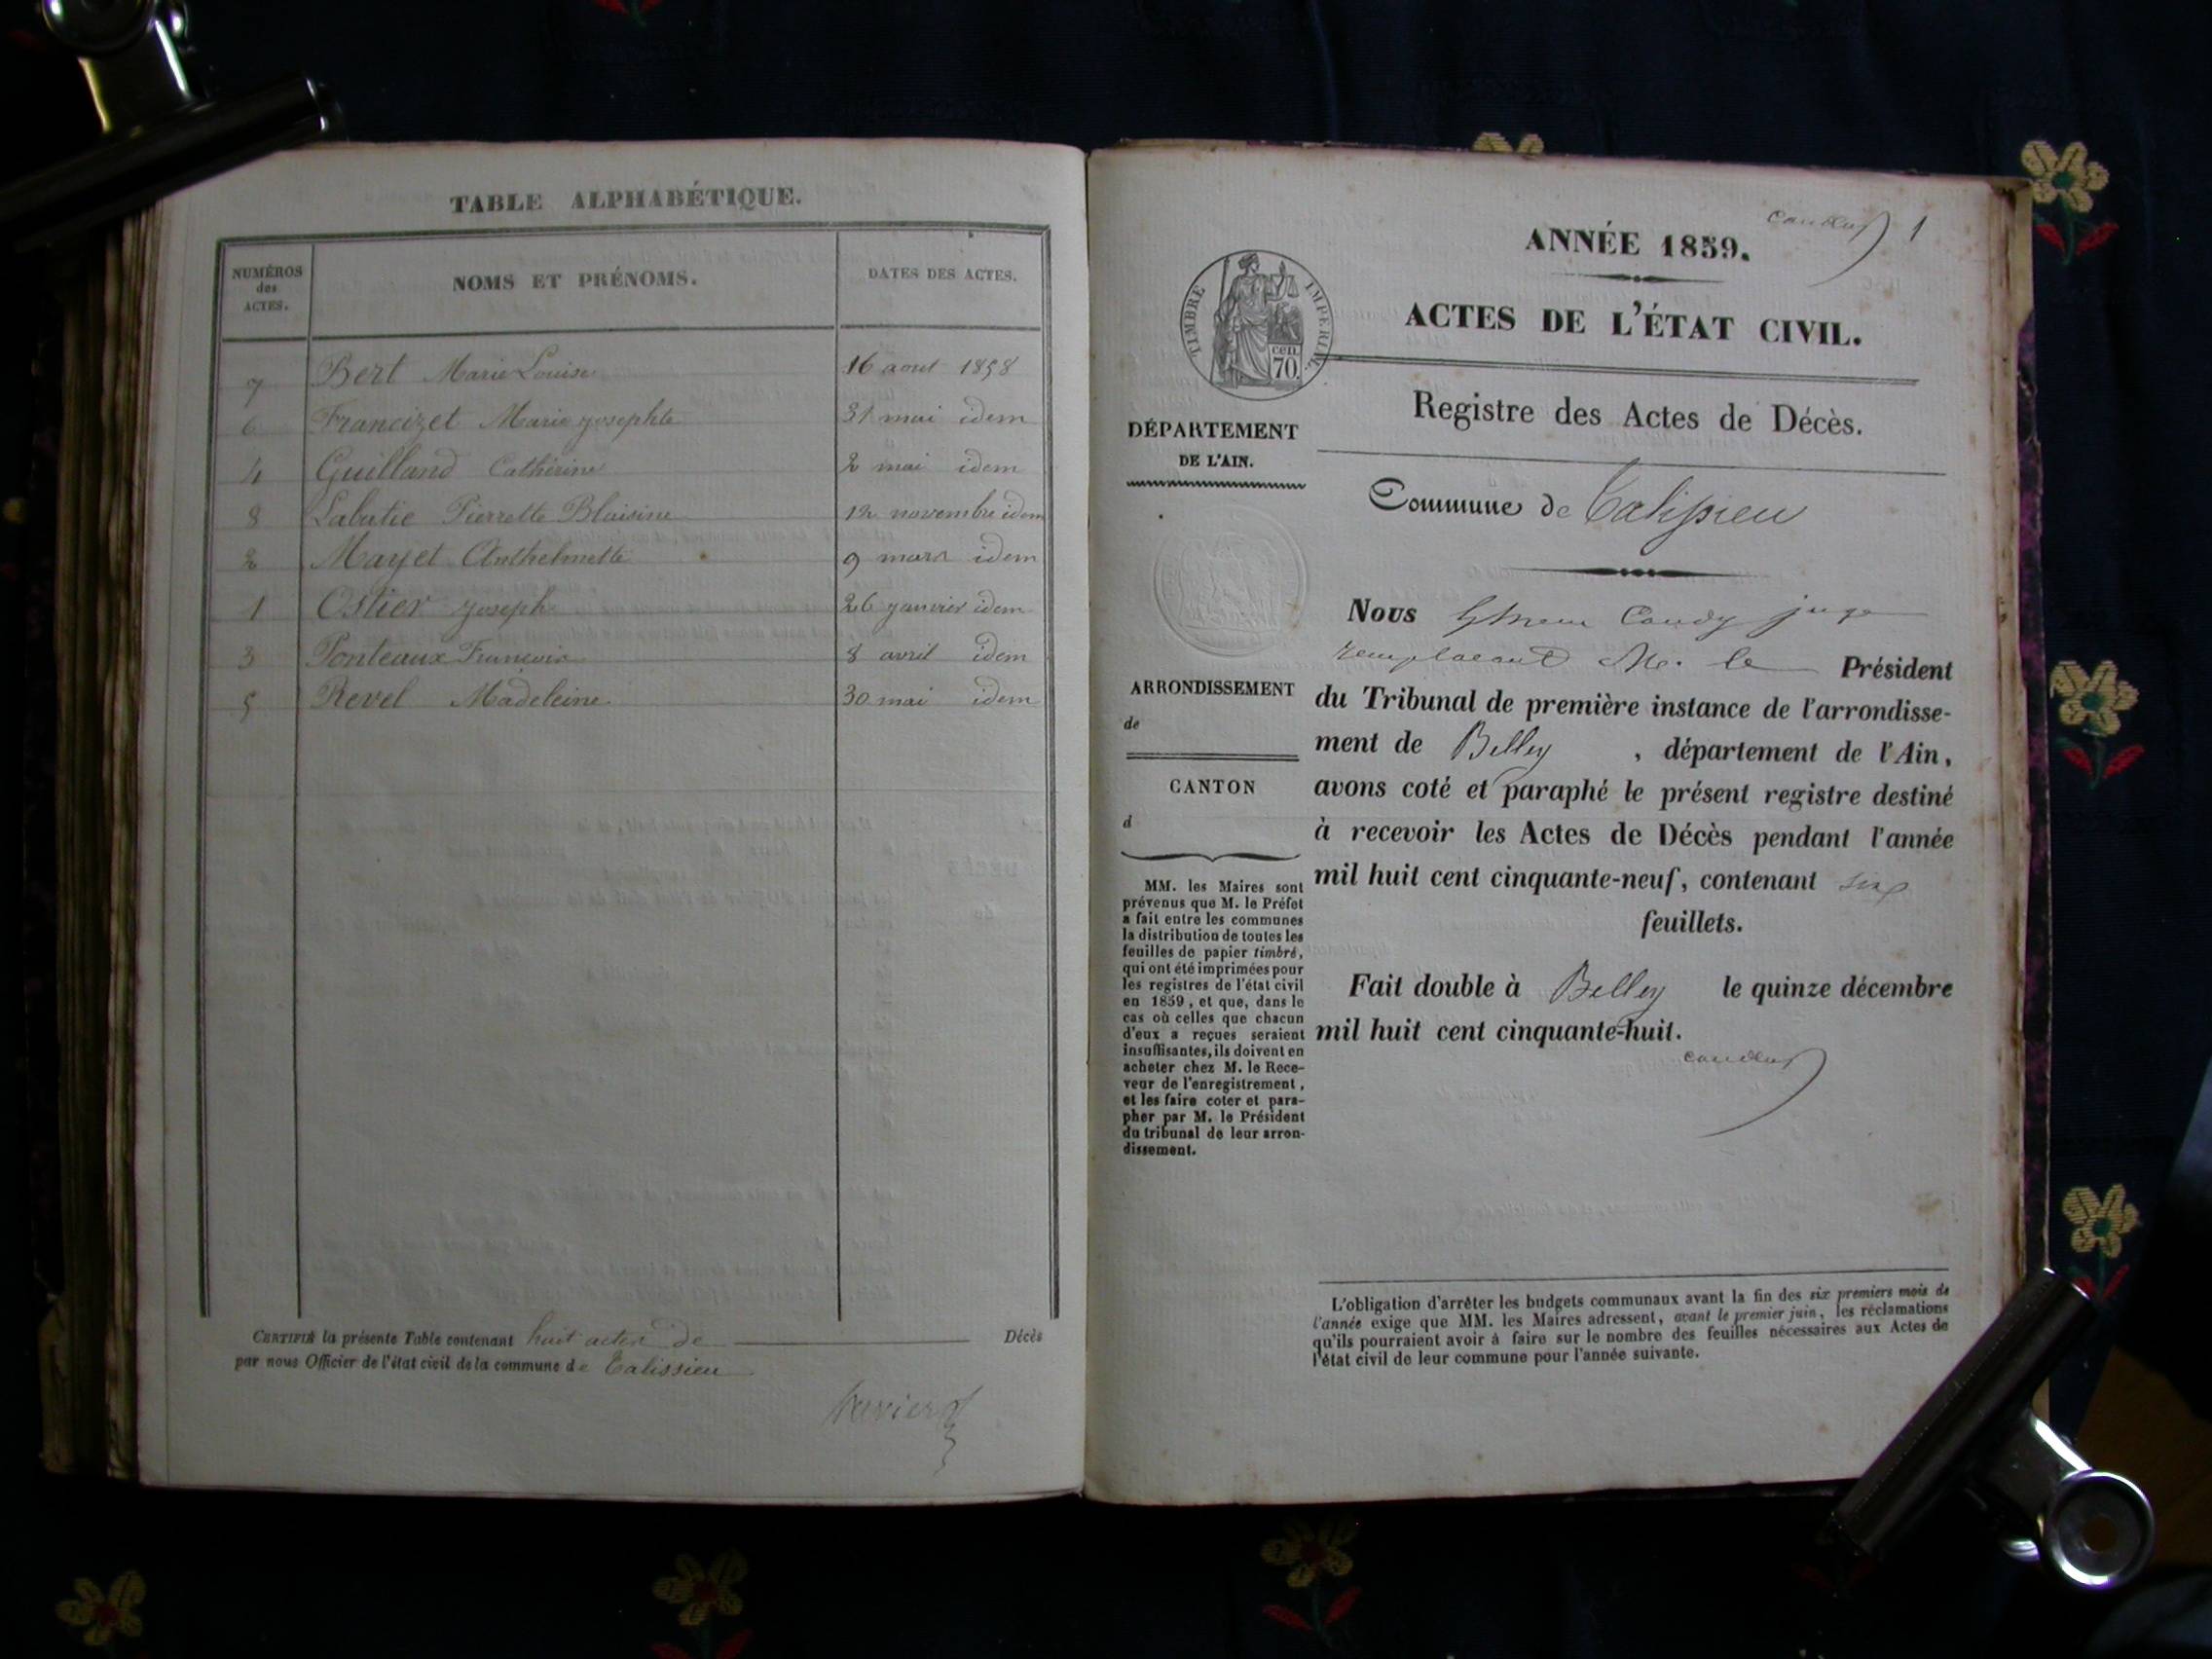 TABLE ALPHABÉTIQUE.
NUMÉROS
des
ACTES.
NOMS ET PRÉNOMS.
DATES DES ACTES.
7 Bert Marie Louise 16 aout 1858
6 Francizet Marie josephte 31 mai idem
4 Guilland Catherine 2 mai idem
8 Labatie Pierrette Blaisine 12 novembre idem
2 Marjet Anthelmette 9 mars idem
1 Ostier joseph 26 janvier idem
3 Ponteaux Francois 8 avril idem
5 Revel Madeleine 30 mai idem
CERTIFIÉ la présente Table contenant huit actes de Décès
par nous Officier de l'état civil de la commune de Talissieu
ANNÉE 1859.
1
ACTES DE L'ÉTAT CIVIL.
TIMBRE IMPERIAL
CEN.
70.
Registre des Actes de Décès.
DÉPARTEMENT
DE L'AIN.
Commune de Talissieu
Nous Candy juge
remplacant Mr. le Président
du Tribunal de première instance de l'arrondisse-
ment de Belley, département de l'Ain,
avons coté et paraphé le présent registre destiné
à recevoir les Actes de Décès pendant l'année
mil huit cent cinquante-neuf, contenant six
feuillets.
Fait double à Belley le quinze décembre
mil huit cent cinquante-huit.
ARRONDISSEMENT
de
CANTON
d
MM. les Maires sont
prévenus que M. le Préfet
a fait entre les communes
la distribution de toutes les
feuilles de papier timbré,
qui ont été imprimées pour
les registres de l'état civil
en 1859, et que, dans le
cas où celles que chacun
d'eux a reçues seraient
insuffisantes, ils doivent en
acheter chez M. le Rece-
veur de l'enregistrement,
et les faire coter et para-
pher par M. le Président
du tribunal de leur arron-
dissement.
L'obligation d'arrêter les budgets communaux avant la fin des six premiers mois de
l'année exige que MM. les Maires adressent, avant le premier juin, les réclamations
qu'ils pourraient avoir à faire sur le nombre des feuilles nécessaires aux Actes de
l'état civil de leur commune pour l'année suivante.